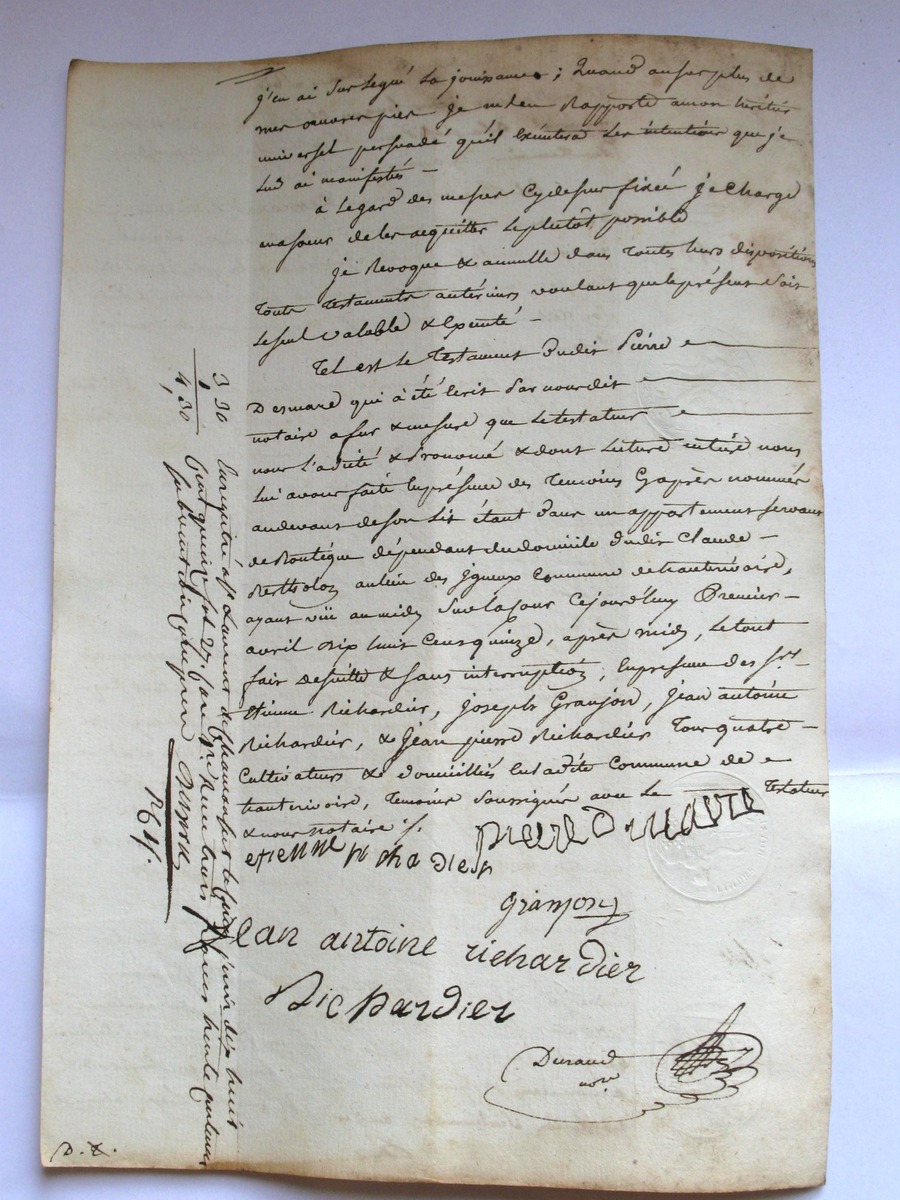 j'en ai sur legué la jouissance ; Quand au surplus de
mes œuvres pies je m'en Rapporte a mon héritier
universel persuadé qu'il Exécutera Les intentions que je
Lui ai manifestés –
à L'egard des messes Cy dessus fixée je Charge
ma soeur de les acquitter Le plutôt possible
je Revoque & annulle dans Toutes leurs dispositions
Touts Testaments antérieurs voulant que le présent soit
Le seul Valable & Executé –
Tel est Le Testament Dudit Pierre
Desmare qui à été Ecrit Par nous dit
notaire a fur & mesure que Le testateur
nous L'a dicté & Prononcé & dont Lecture entière nous
Lui avons faite En présence des Temoins Cy après nommés
au devant de son Lit étant Dans un appartement servant
de Boutique dépendant du domicile Dudit Claude –
Berthollon au lieu des jgneux Commune de hauterivoire,
ayant vüe au midi Sur la Cour Cejourd'huy Premier –
avril Dix huit Cent quinze, après midi, Le tout
fait De suitte & sans interruption, En présence des Srs.
Etienne Richardier, Joseph Granjon, Jean antoine
Richardier, & Jean pierre Richardier Tous quatre –
Cultivateurs & domiciliés En Ladite Commune de
hauterivoire, Temoins Soussignés avec Le Testateur
& nous notaire ./.
etienne richadier
pierre D
Granjon
Jean antoine richardier
Richardier
Durand
nore
3 30
1
4,30
Enregistré à St Laurent de Chamousset le juin dix huit
Cent quinze reçu trois francs trente centimes
D. X.